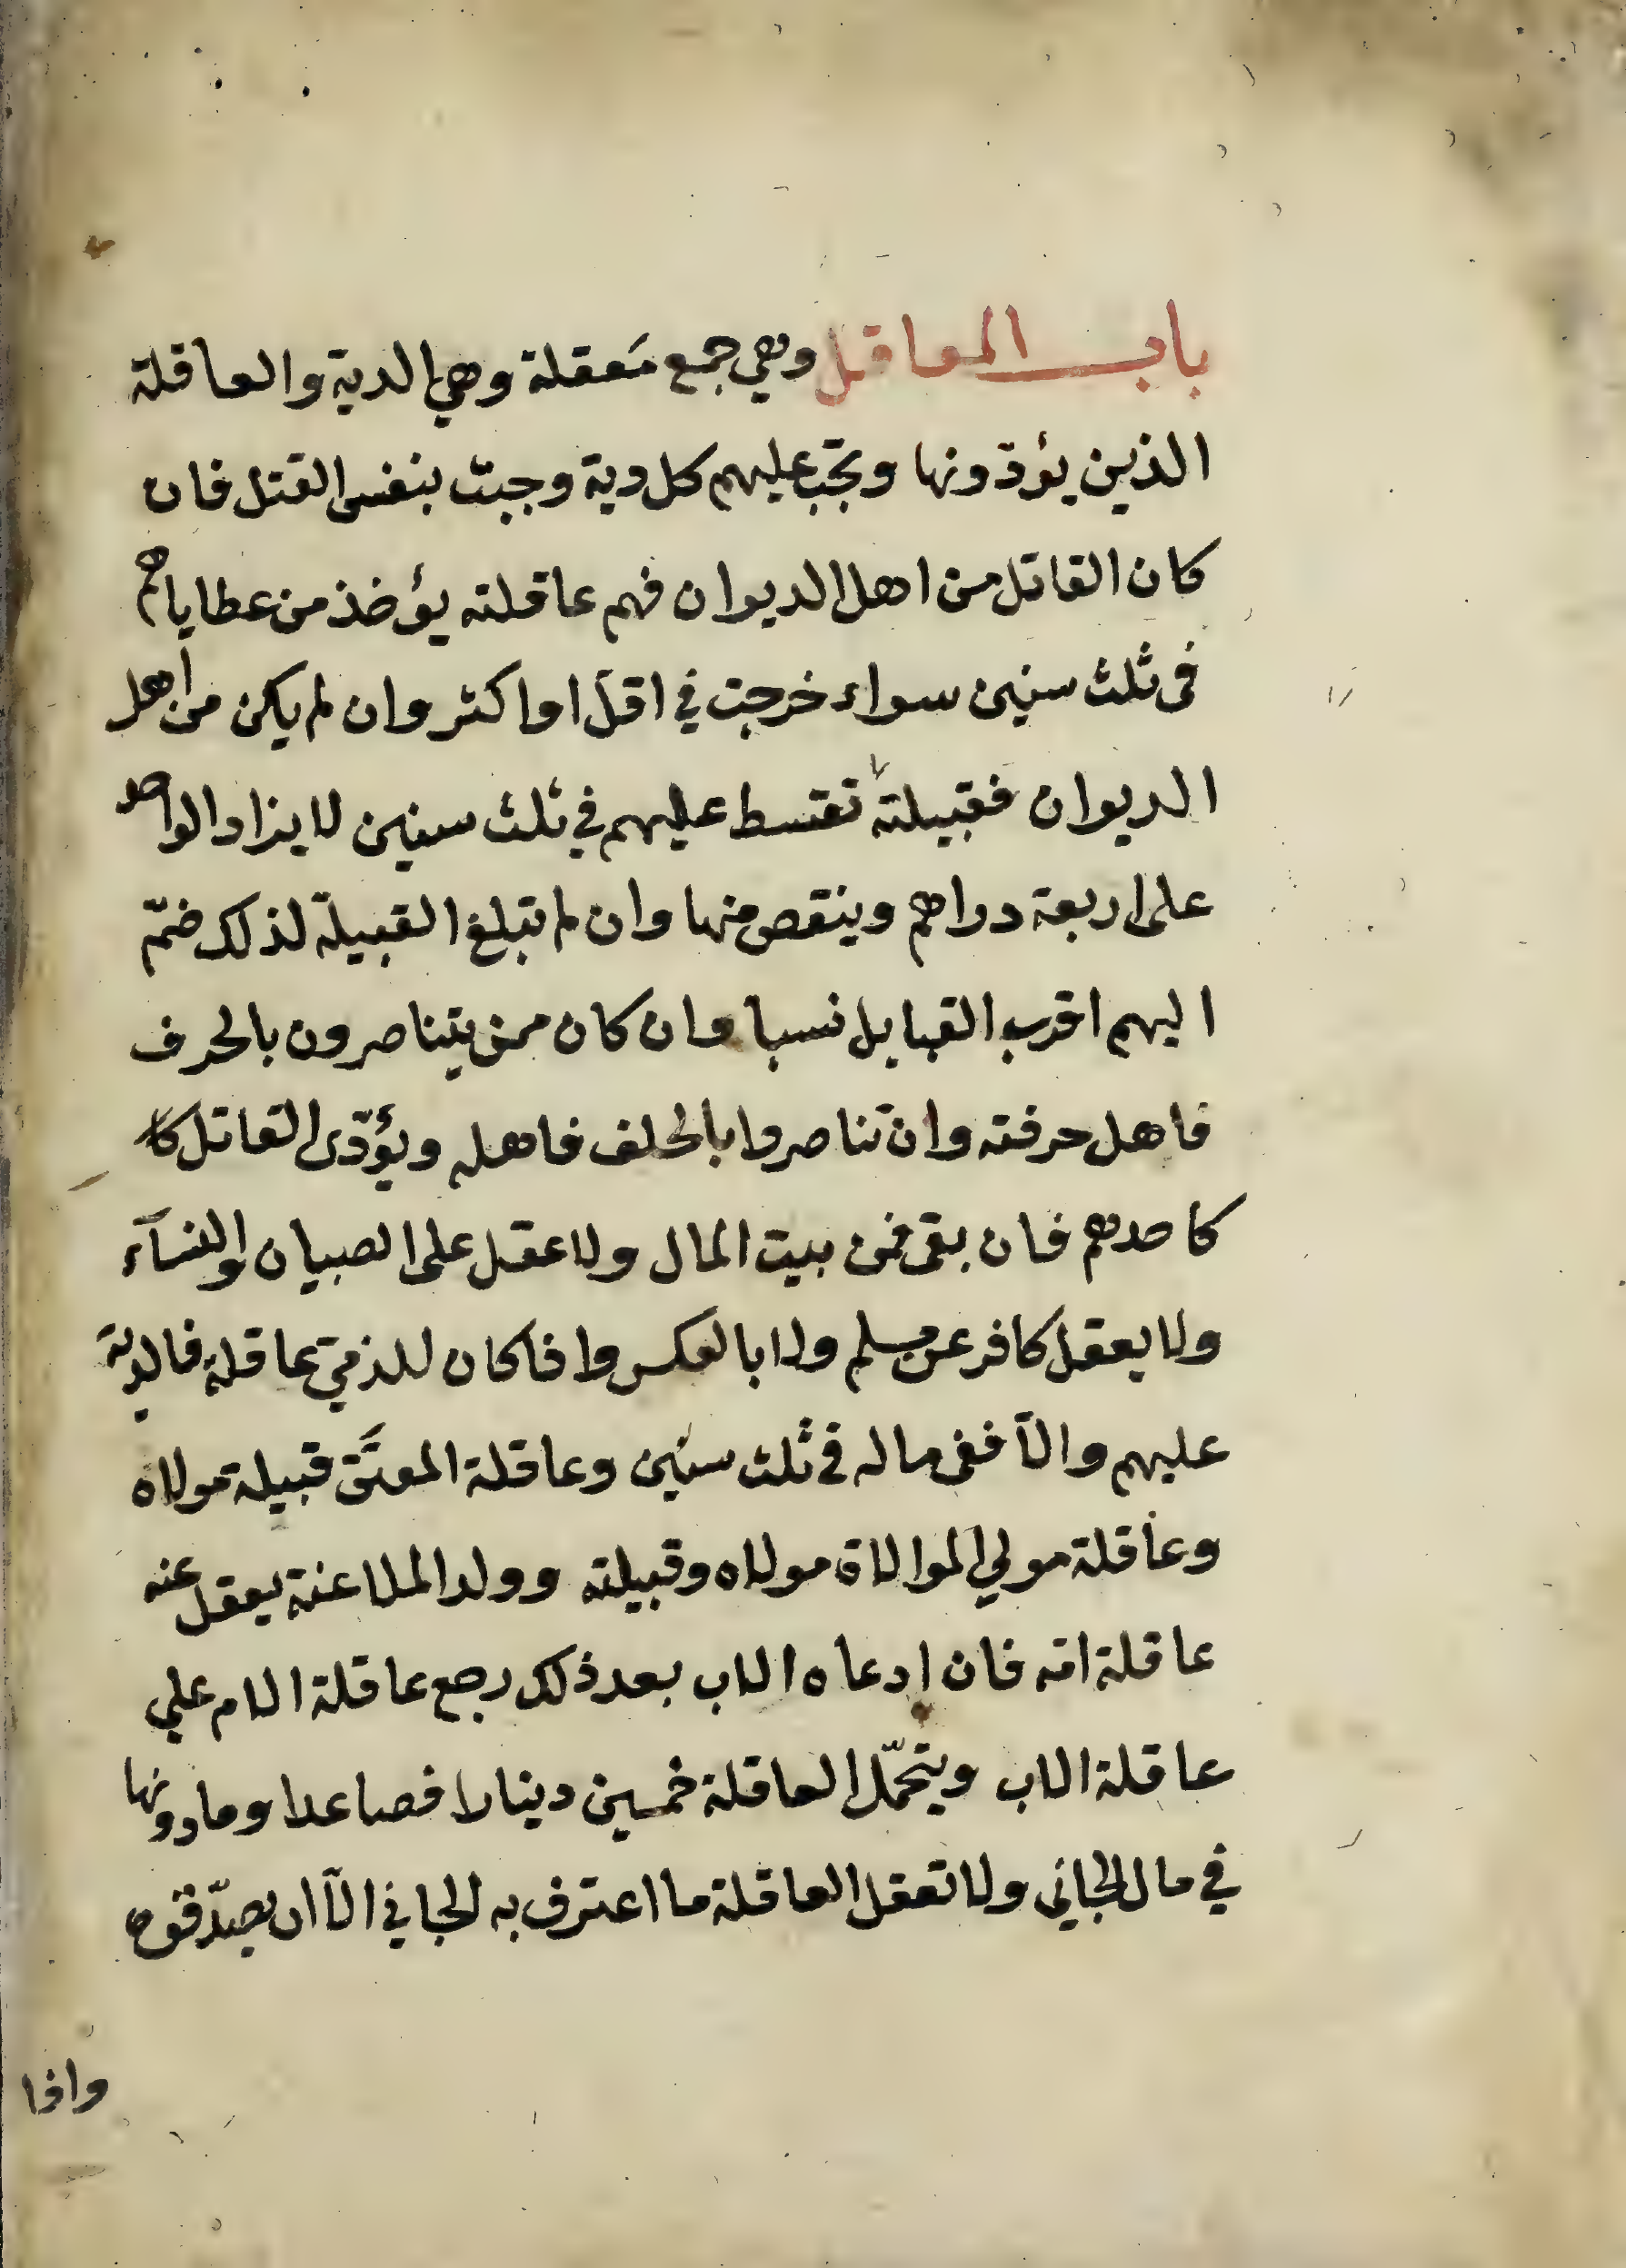 باب المعاقل وهي جمع مَعقلة وهي الدية والعاقلة
الذين يؤدّونها وتجب عليهم كل دية وجبت بنفس القتل فان
كان القاتل من اهل الديوان فهم عاقلته يؤخذ من عطاياهم
فى ثلث سنين سواء خرجت في اقل او اكثر وان لم يكن من اهل
الديوان فقبيلته تقسط عليهم في ثلث سنين لا يزاد الواحد
على اربعة دراهم وينقص منها وان لم تبلغ القبيلة لذلك ضمّ
اليهم اقرب القبايل نسبا وان كان ممن يتناصرون بالحرف
فاهل حرفته وان تناصروا بالحلف فاهله ويؤدّى القاتل كا
كاحدهم فان بقى فمن بيت المال ولا عقل على الصبيان والنسآء
ولا يعقل كافر عن مسلم ولا بالعكس واذا كان للذميّ عاقلة فالدية
عليهم والّا ففى ماله في ثلث سنين وعاقلة المعتَق قبيلة مولاه
وعاقلة مولي الموالاة مولاه وقبيلته وولد الملاعنة يعقل عنه
عاقلة امّه فان ادعاه الاب بعد ذلك رجع عاقلة الام علي
عاقلة الاب ويتحمّل العاقلة خمسين دينارا فصاعدا وما دونها
في مال الجاني ولا تعقل العاقلة ما اعترف به الجاني الّا ان يصدّقوه
واذا